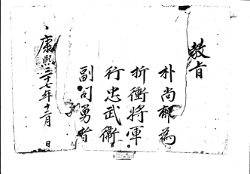 教旨
朴尚郁為
折衝將軍
行忠武衛
副司勇者
康熙三十七年十二月 日